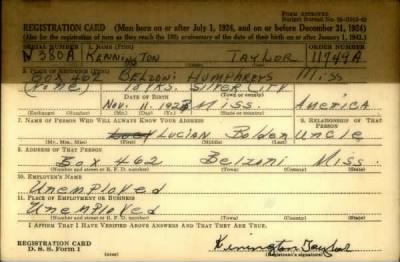 FORM APPROVED
REGISTRATION CARD (Men born on or after July 1, 1924, and on or before December 31, 1924)
(Also for the registration of men as they reach the 18th anniversary of the date of their birth on or after January 1, 1943.)
SERIAL NUMBER 1. NAME (Print) ORDER NUMBER
W 380A KENNINGTON TAYLOR 11749A
2. PLACE OF RESIDENCE (Print)
BOX 402 BELZONI HUMPHREYS MISS
(None) SILVER CITY
(Town or county)
Nov. 11. MISS. AMERICA
(State or country)
7. NAME OF PERSON WHO WILL ALWAYS KNOW YOUR ADDRESS 8. RELATIONSHIP OF THAT PERSON
LUCIAN Bolden Uncle
(Mr., Mrs., Miss) (First) (Middle) (Last)
9. ADDRESS OF THAT PERSON
Box 462 Belzoni Miss.
(Number and street or R. F. D. number) (Town) (County) (State)
10. EMPLOYER'S NAME
Unemployed
11. PLACE OF EMPLOYMENT OR BUSINESS
Unemployed
(Number and street or R. F. D. number) (Town) (County) (State)
I AFFIRM THAT I HAVE VERIFIED ABOVE ANSWERS AND THAT THEY ARE TRUE.
REGISTRATION CARD
D. S. S. Form 1
Kinington Taylor
(Registrant's signature)